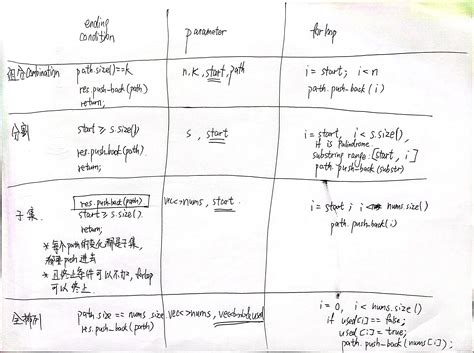 ending condition
parameter
for loop
组合 Combination
path.size()==k
res.push-back(path)
return;
n, k, start, path
i = start; i < n
path.push-back(i)
分割
start ≥ s.size()
res.push.back(path).
return;
s, start
i = start, i < s.size(),
if is Palindrome.
substring range: [start, i]
path.push-back(substr)
子集
res.push.back(path)
start ≥ s.size().
return;
* 每个path的变化都是子集,
都要push进去
* 且终止条件可以不加, for loop
可以终止.
vec<>nums, start
i = start; i < nums.size()
path.push.back(i)
全排列
path.size == nums.size
res.push-back(path)
vec<>nums, vec<bool>used
i = 0, i < nums.size()
if used[i] == false;
used[i] = true;
path.push-back(nums[i]);